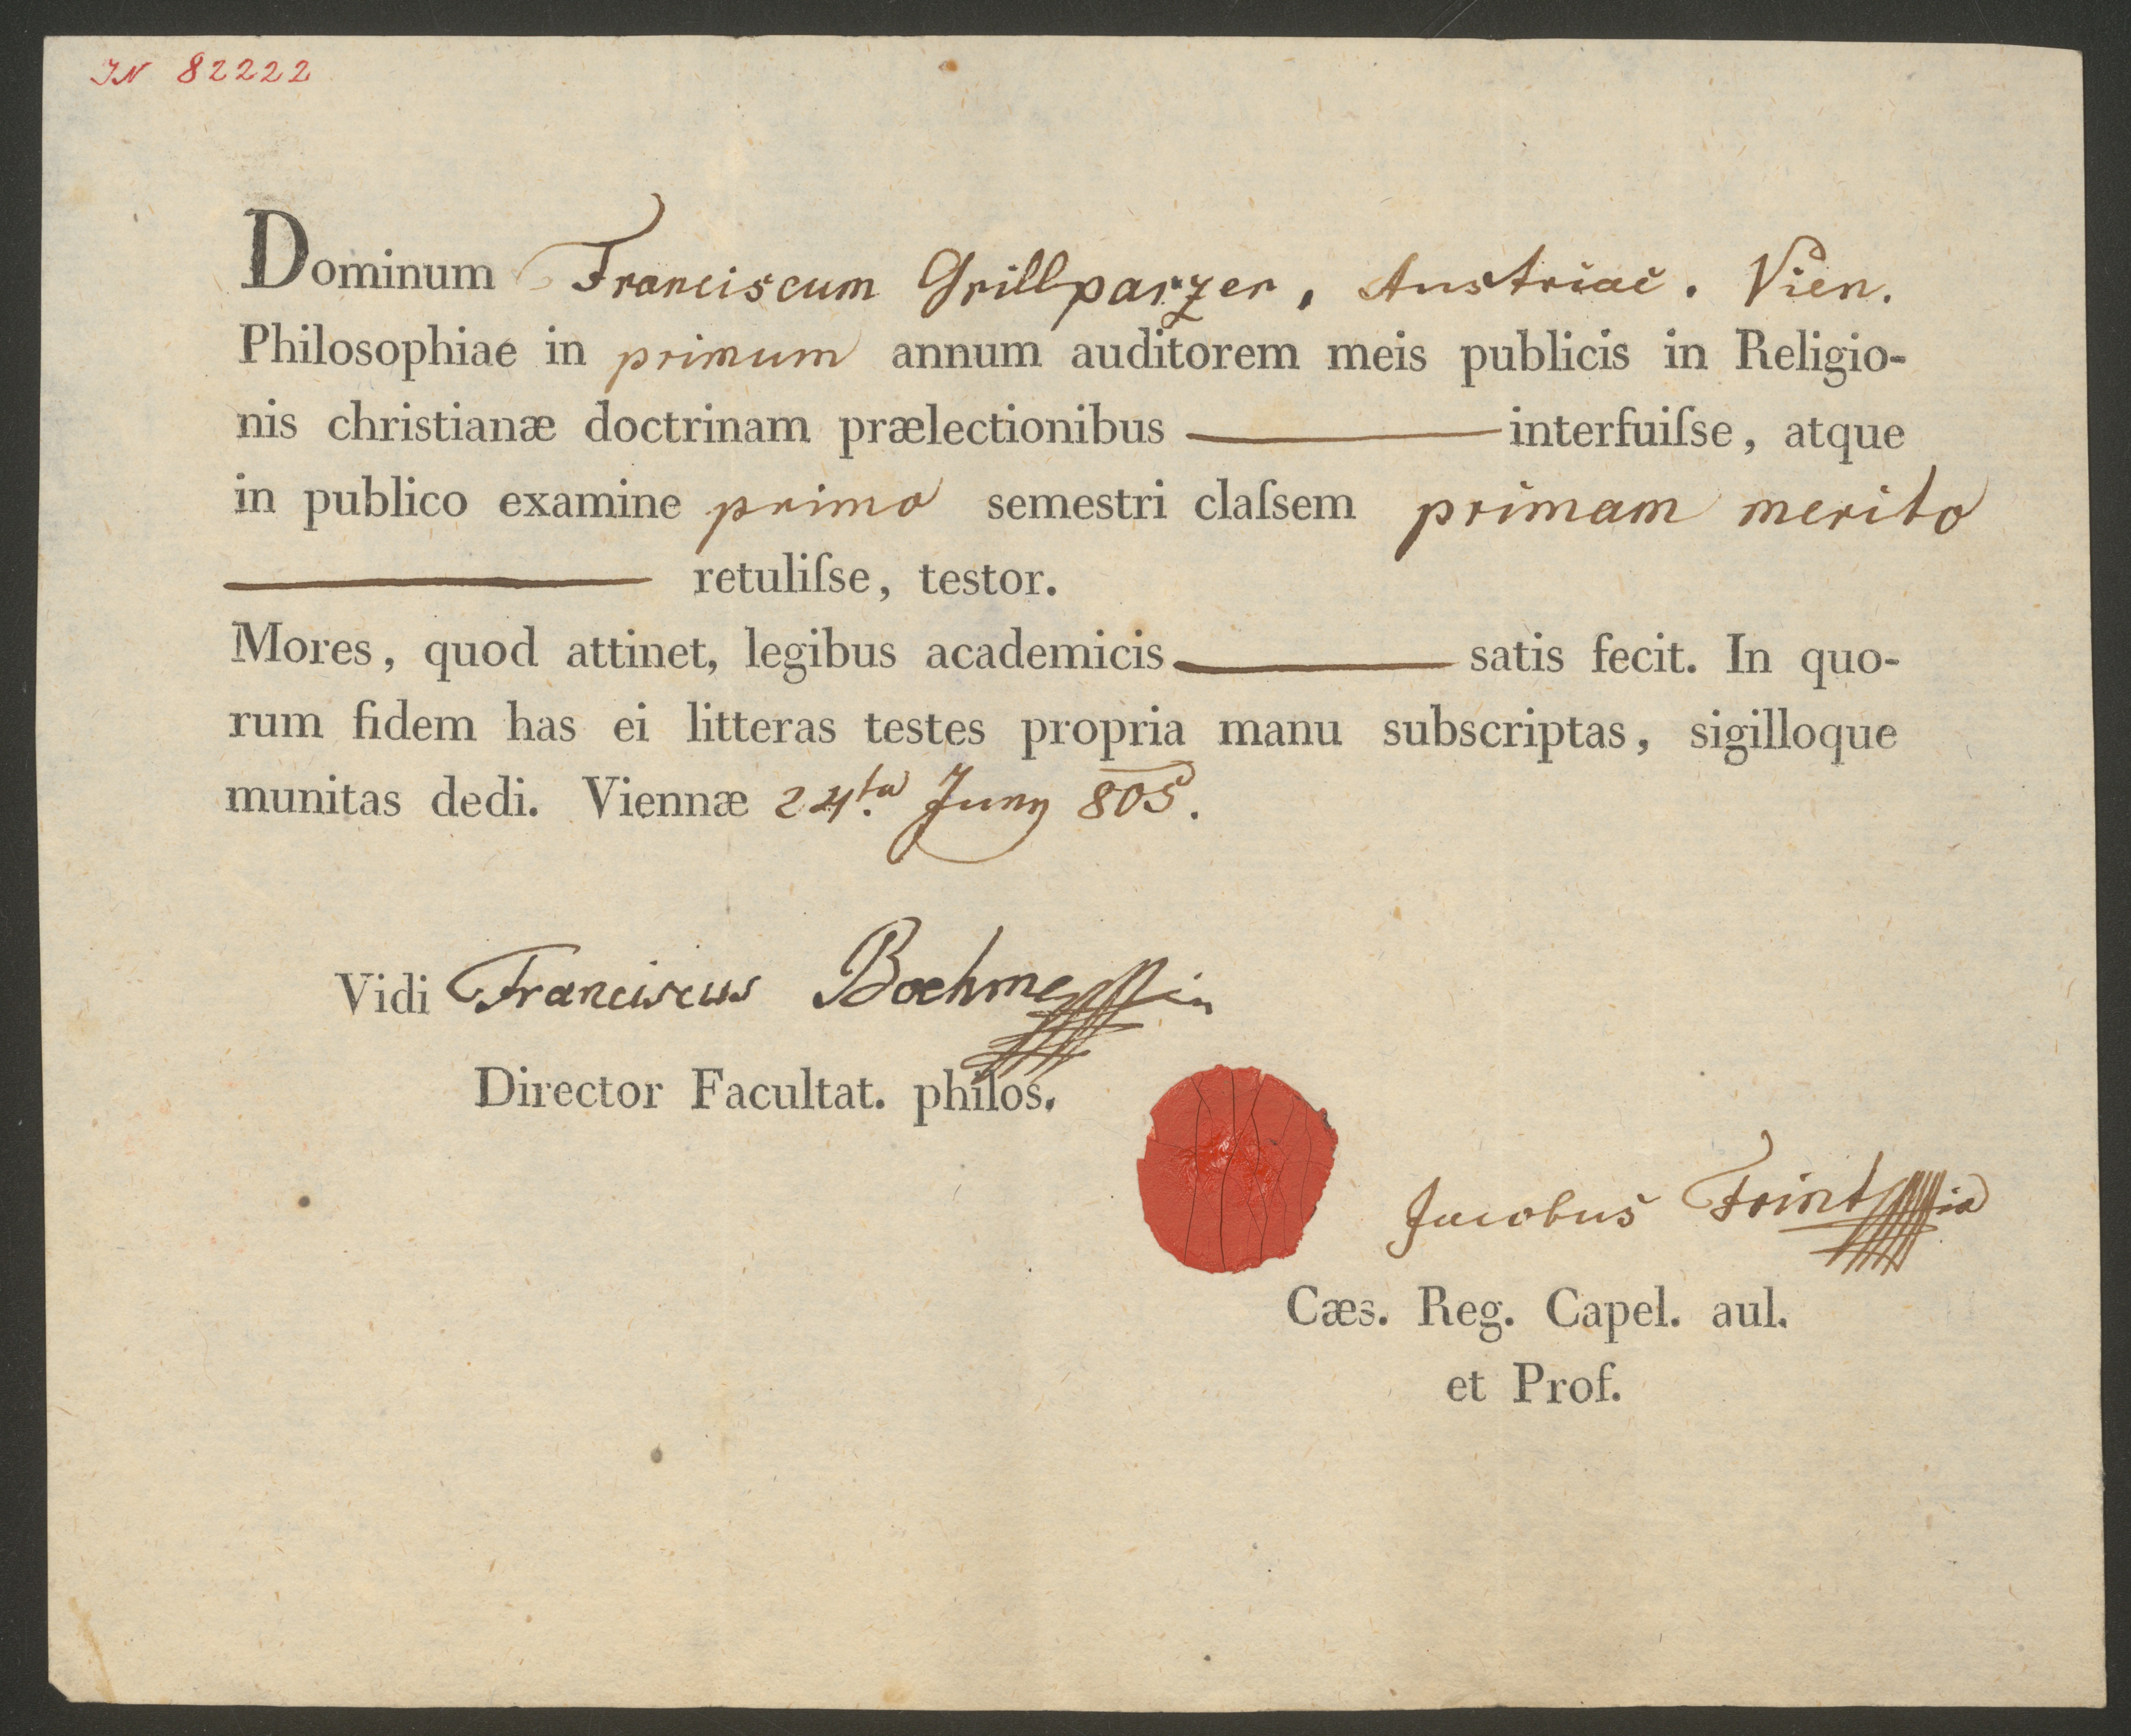 IN 82222
Dominum Franciscum Grillparzer, Austriac. Vien.
Philosophiae in primum annum auditorem meis publicis in Religio-
nis christianæ doctrinam prælectionibus interfuiſse, atque
in publico examine primo semestri claſsem primam merito
retuliſse, testor.
Mores, quod attinet, legibus academicis satis fecit. In quo-
rum fidem has ei litteras testes propria manu subscriptas, sigilloque
munitas dedi. Viennæ 24ta Juny 805.
Vidi Franciscus Boehm
Director Facultat. philos.
Jacobus Frint
Cæs. Reg. Capel. aul.
et Prof.